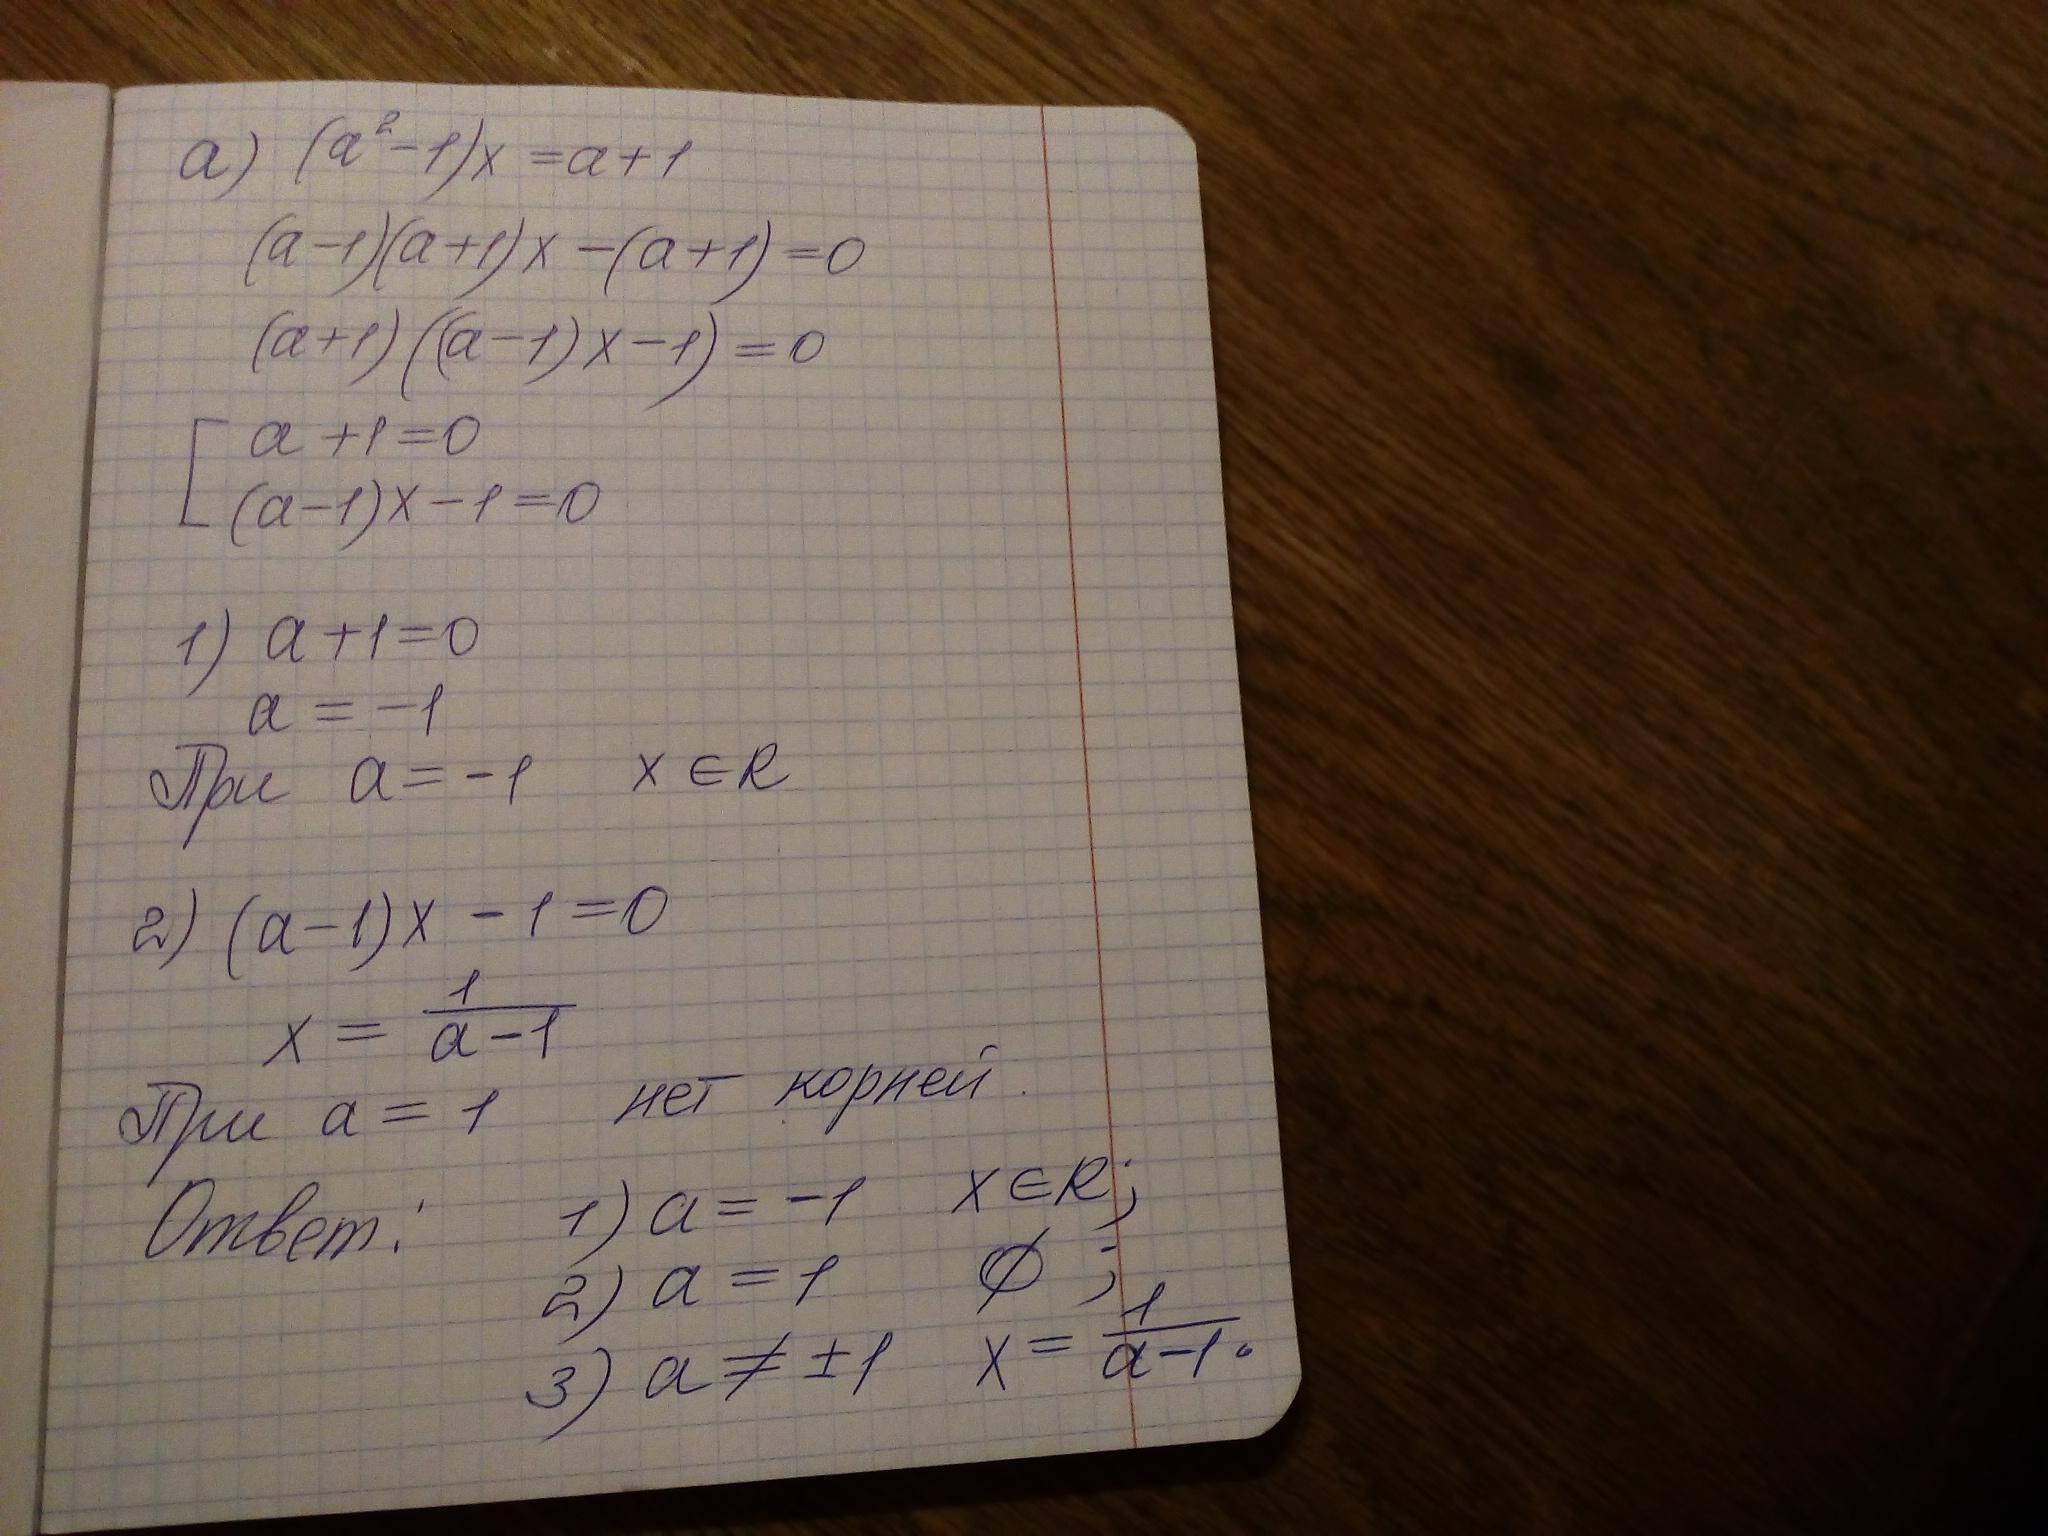 а) (a²-1)x = a+1
(a-1)(a+1)x - (a+1) = 0
(a+1)((a-1)x-1) = 0
[ a+1=0
(a-1)x-1=0
1) a+1=0
a = -1
При a = -1 x∈R
2) (a-1)x - 1 = 0
x = 1/(a-1)
При a = 1 нет корней.
Ответ: 1) a = -1 x∈R;
2) a = 1 ∅ ;
3) a ≠ ±1 x = 1/(a-1).